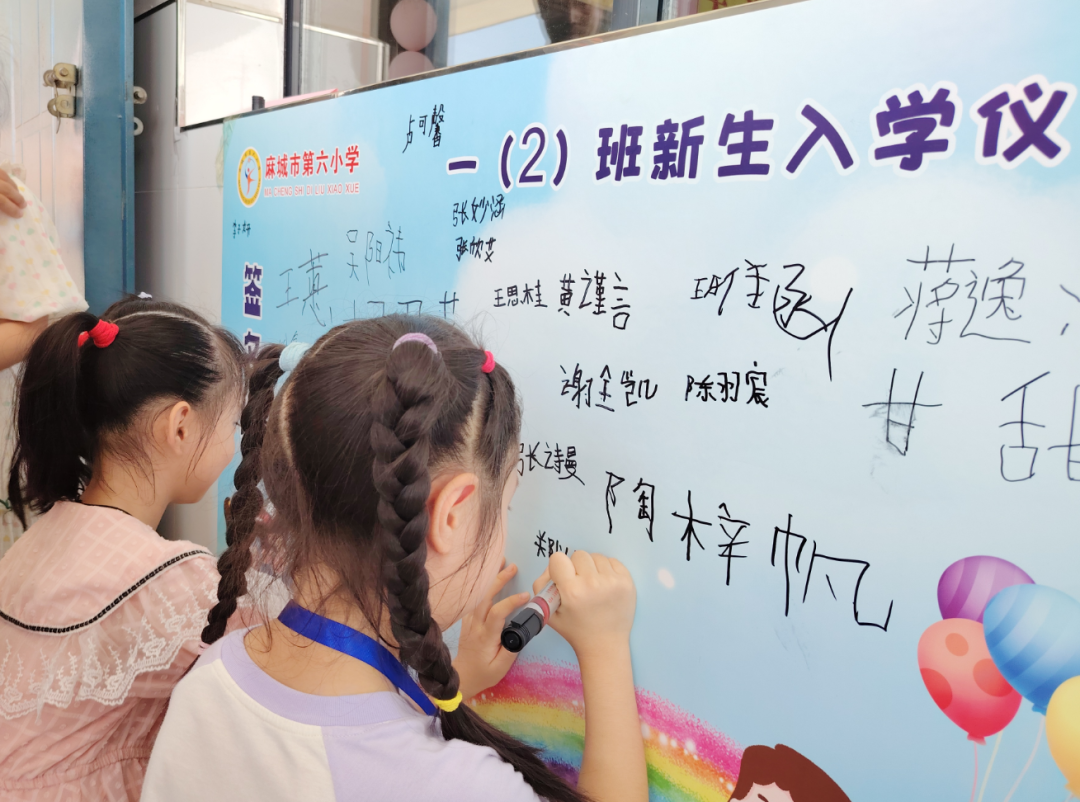 卢可馨
麻城市第六小学
MA CHENG SHI DI LIU XIAO XUE
一（2）班新生入学仪
签
张妙涵
张欣艾
王蕙
吴阳祎
王思桂 黄谨言
蒋逸
谢金凯 陈羽宸
甘 甜
张诗曼
陶梓帆
郑